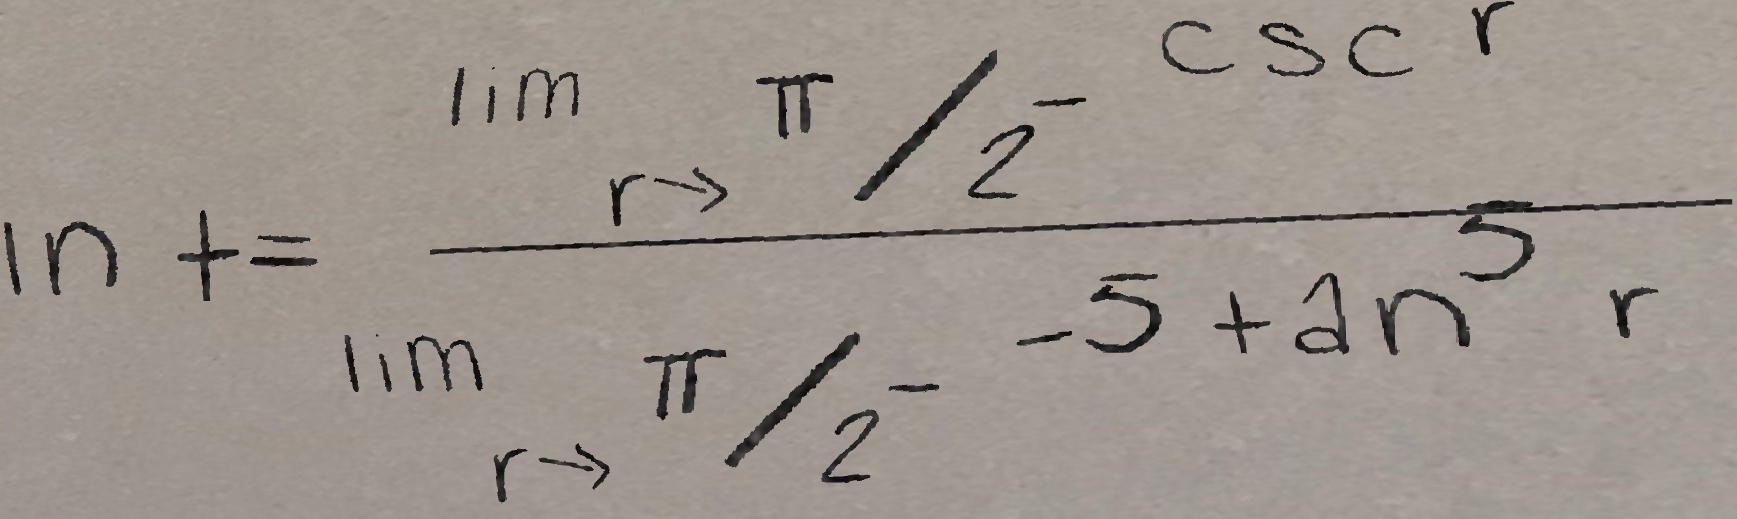 \ln t = \frac{\lim_{r \to \pi/2^-} \csc r}{\lim_{r \to \pi/2^-} -5 \tan^5 r}